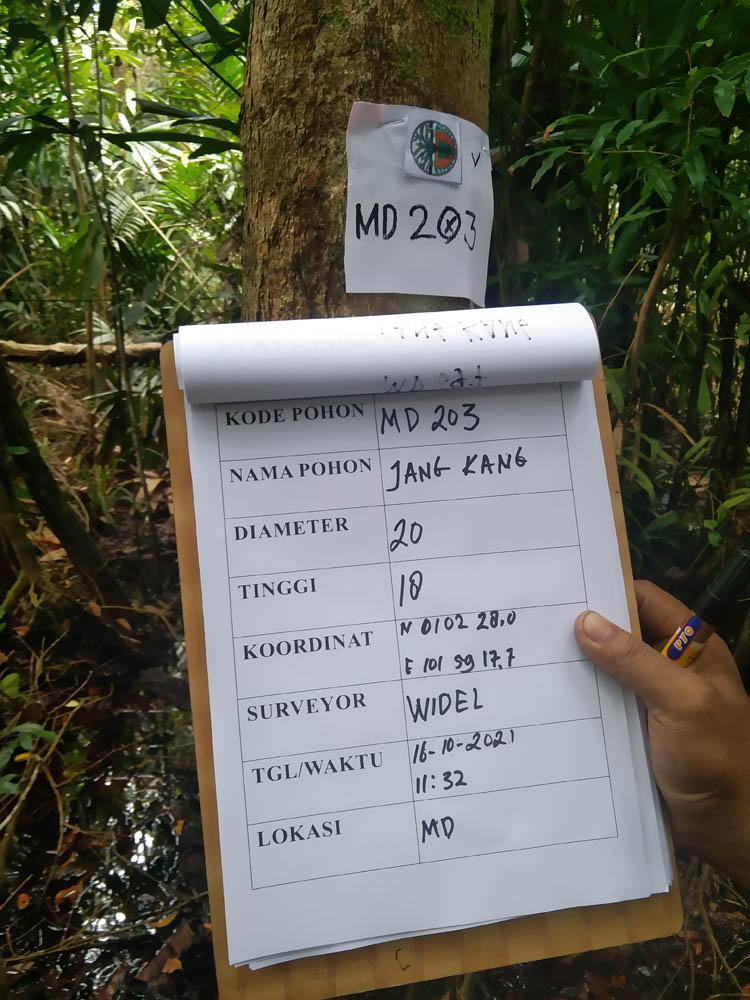 V
MD 203
KODE POHON MD 203
NAMA POHON JANG KANG
DIAMETER 20
TINGGI 10
KOORDINAT N 0102 28.0
E 101 59 17.7
SURVEYOR WIDEL
TGL/WAKTU 16-10-2021
11:32
LOKASI MD